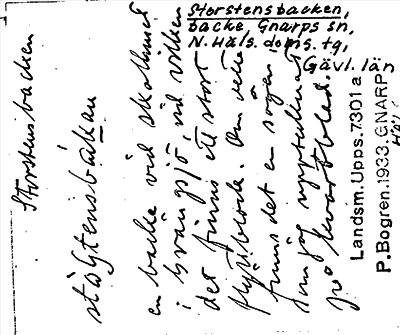 Storstensbacken,
backe, Gnarps sn,
N. Häls. doms. tg,
Gävl. län
Storstensbacken
ståLstensbákan
en backe vid skolhuset
i Gränsjö vid vilken
det finns ett stort
flyttblock. Om detta
finns det en sägen
som jag upptecknat
på kvartblad.
Landsm. Upps. 7301 a
P. Bogren. 1933. GNARP